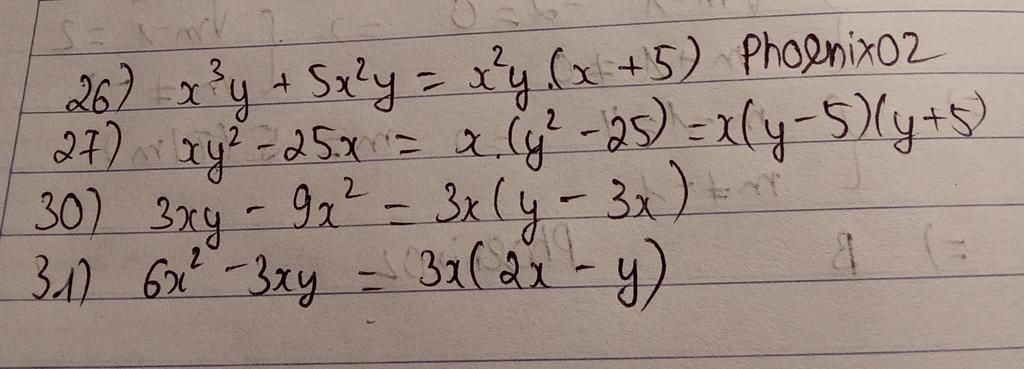 26) x³y + 5x²y = x²y.(x + 5) Phoenix02
27) xy² - 25x = x.(y² - 25) = x(y - 5)(y + 5)
30) 3xy - 9x² = 3x(y - 3x)
31) 6x² - 3xy = 3x(2x - y)